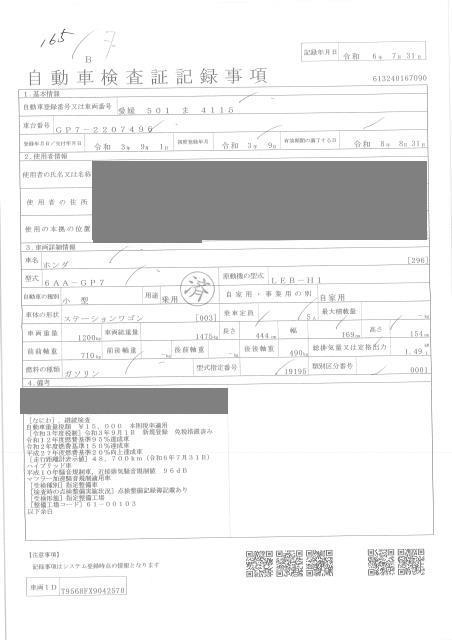 165/7
B
自動車検査証記録事項
記録年月日 令和 6年 7月31日
613240167090
1.基本情報
自動車登録番号又は車両番号 愛媛 501 ま 4115
車台番号 GP7-2207496
登録年月日/交付年月日 令和 3年 9月 1日 初度登録年月 令和 3年 9月 有効期間の満了する日 令和 8年 8月31日
2.使用者情報
使用者の氏名又は名称
使用者の住所
使用の本拠の位置
3.車両詳細情報
車名 ホンダ [296]
型式 6AA-GP7 済 原動機の型式 LEB-H1
自動車の種別 小型 用途 乗用 自家用・事業用の別 自家用
車体の形状 ステーションワゴン [003] 乗車定員 5人 最大積載量 -kg
車両重量 1200kg 車両総重量 1475kg 長さ 444cm 幅 169cm 高さ 154cm
前前軸重 710kg 前後軸重 -kg 後前軸重 -kg 後後軸重 490kg 総排気量又は定格出力 1.49L
燃料の種類 ガソリン 型式指定番号 19195 類別区分番号 0001
4.備考
[なにわ]、継続検査
自動車重量税額 ¥15,000 本則税率適用
[令和3年度税制]令和3年9月1日 新規登録 免税措置済み
令和12年度燃費基準95%達成車
令和2年度燃費基準150%達成車
平成27年度燃費基準20%向上達成車
[走行距離計表示値]48,700km(令和6年7月31日)
ハイブリッド車
平成10年騒音規制車、近接排気騒音規制値 96dB
マフラー加速騒音規制適用車
[受検種別]指定整備車
[検査時の点検整備実施状況]点検整備記録簿記載あり
[受検形態]指定整備工場
[整備工場コード]61-00103
以下余白
【注意事項】
記録事項はシステム登録時点の情報となります
車両ID T9568FX9042578